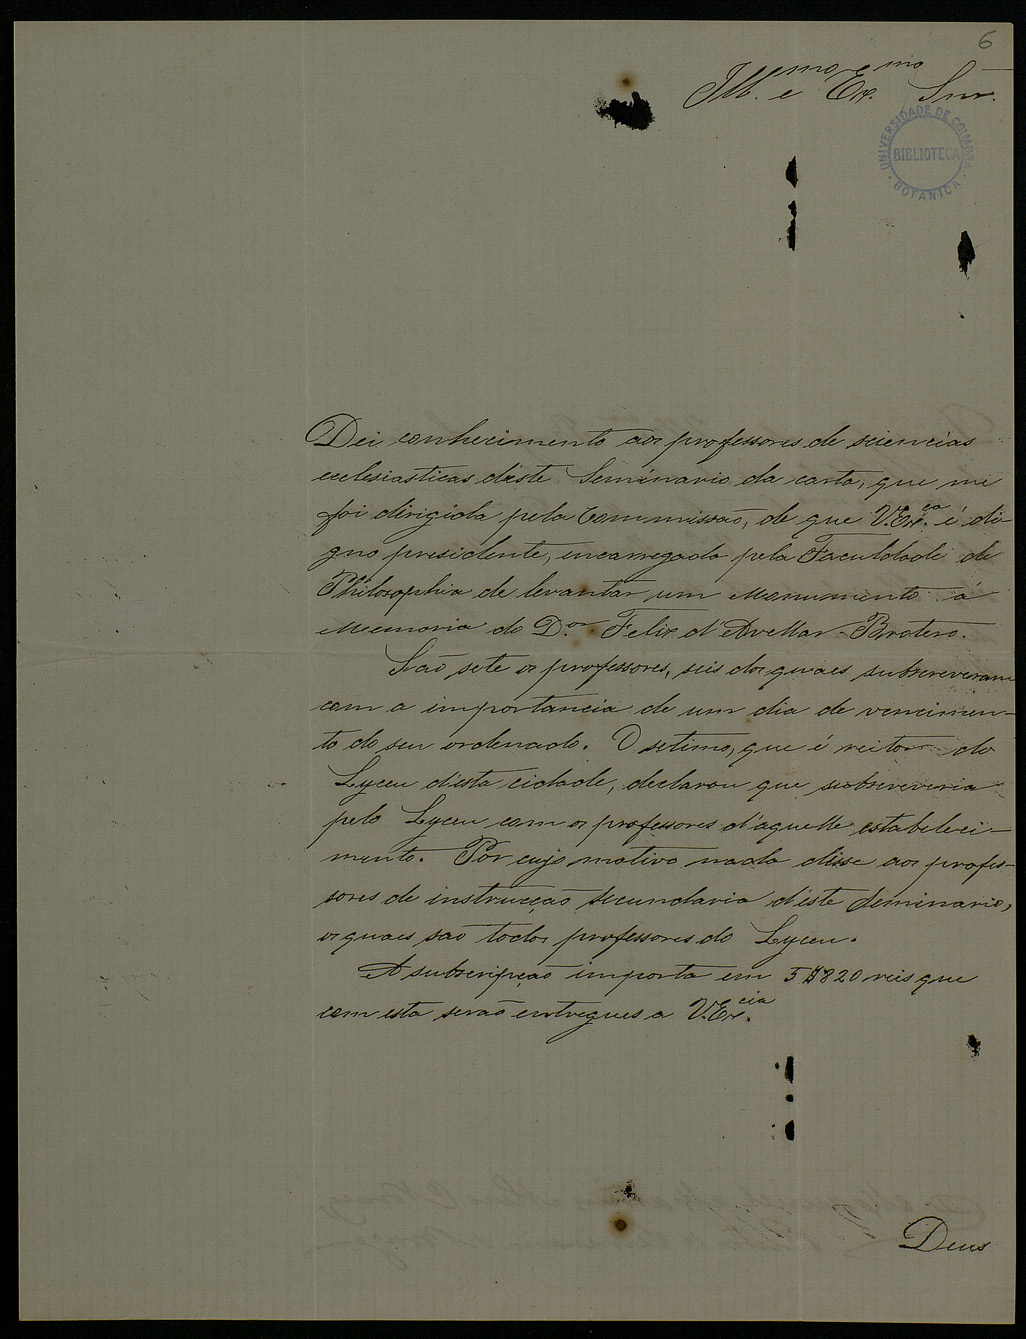 6
Ill.mo e Ex.mo Snr.
UNIVERSIDADE DE COIMBRA
BIBLIOTECA
BOTANICA
Dei conhecimento aos professores de sciencias
ecclesiasticas d'este Seminario da carta, que me
foi dirigida pela Commissão, de que V. Ex.ca é di-
gno presidente, encarregada pela Faculdade de
Philosophia de levantar um Monumento á
Memoria do D.or Felix d'Avellar Brotero.
São sete os professores, seis dos quaes subscreveram
com a importancia de um dia de vencimen-
to do seu ordenado. O setimo, que é reitor do
Lyceu d'esta cidade, declarou que subscreveria
pelo Lyceu com os professores d'aquelle estabeleci-
mento. Por cujo motivo nada disse aos profes-
sores de instrucção secundaria d'este Seminario,
os quaes são todos professores do Lyceu.
A subscripção importa em 5$820 reis que
com esta serão entregues a V. Ex.cia
Deus